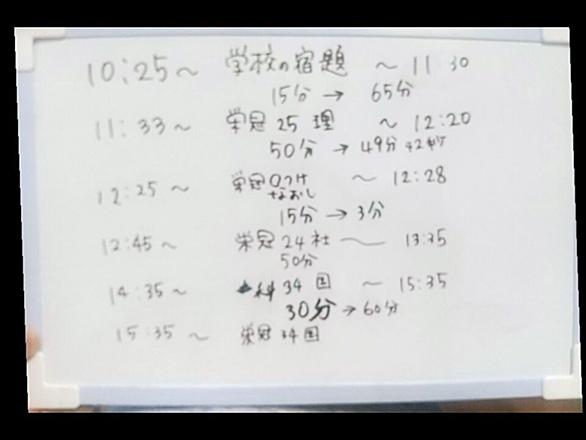 10:25～ 学校の宿題 ～ 11 30
15分 → 65分
11:33～ 栄冠 25 理 ～ 12:20
50分 → 49分 42秒
12:25～ 栄冠 0つけ ～ 12:28
なおし
15分 → 3分
12:45～ 栄冠 24 社 ～ 13:35
50分
14:35～ 科 34 国 ～ 15:35
30分 → 60分
15:35～ 栄冠 34 国